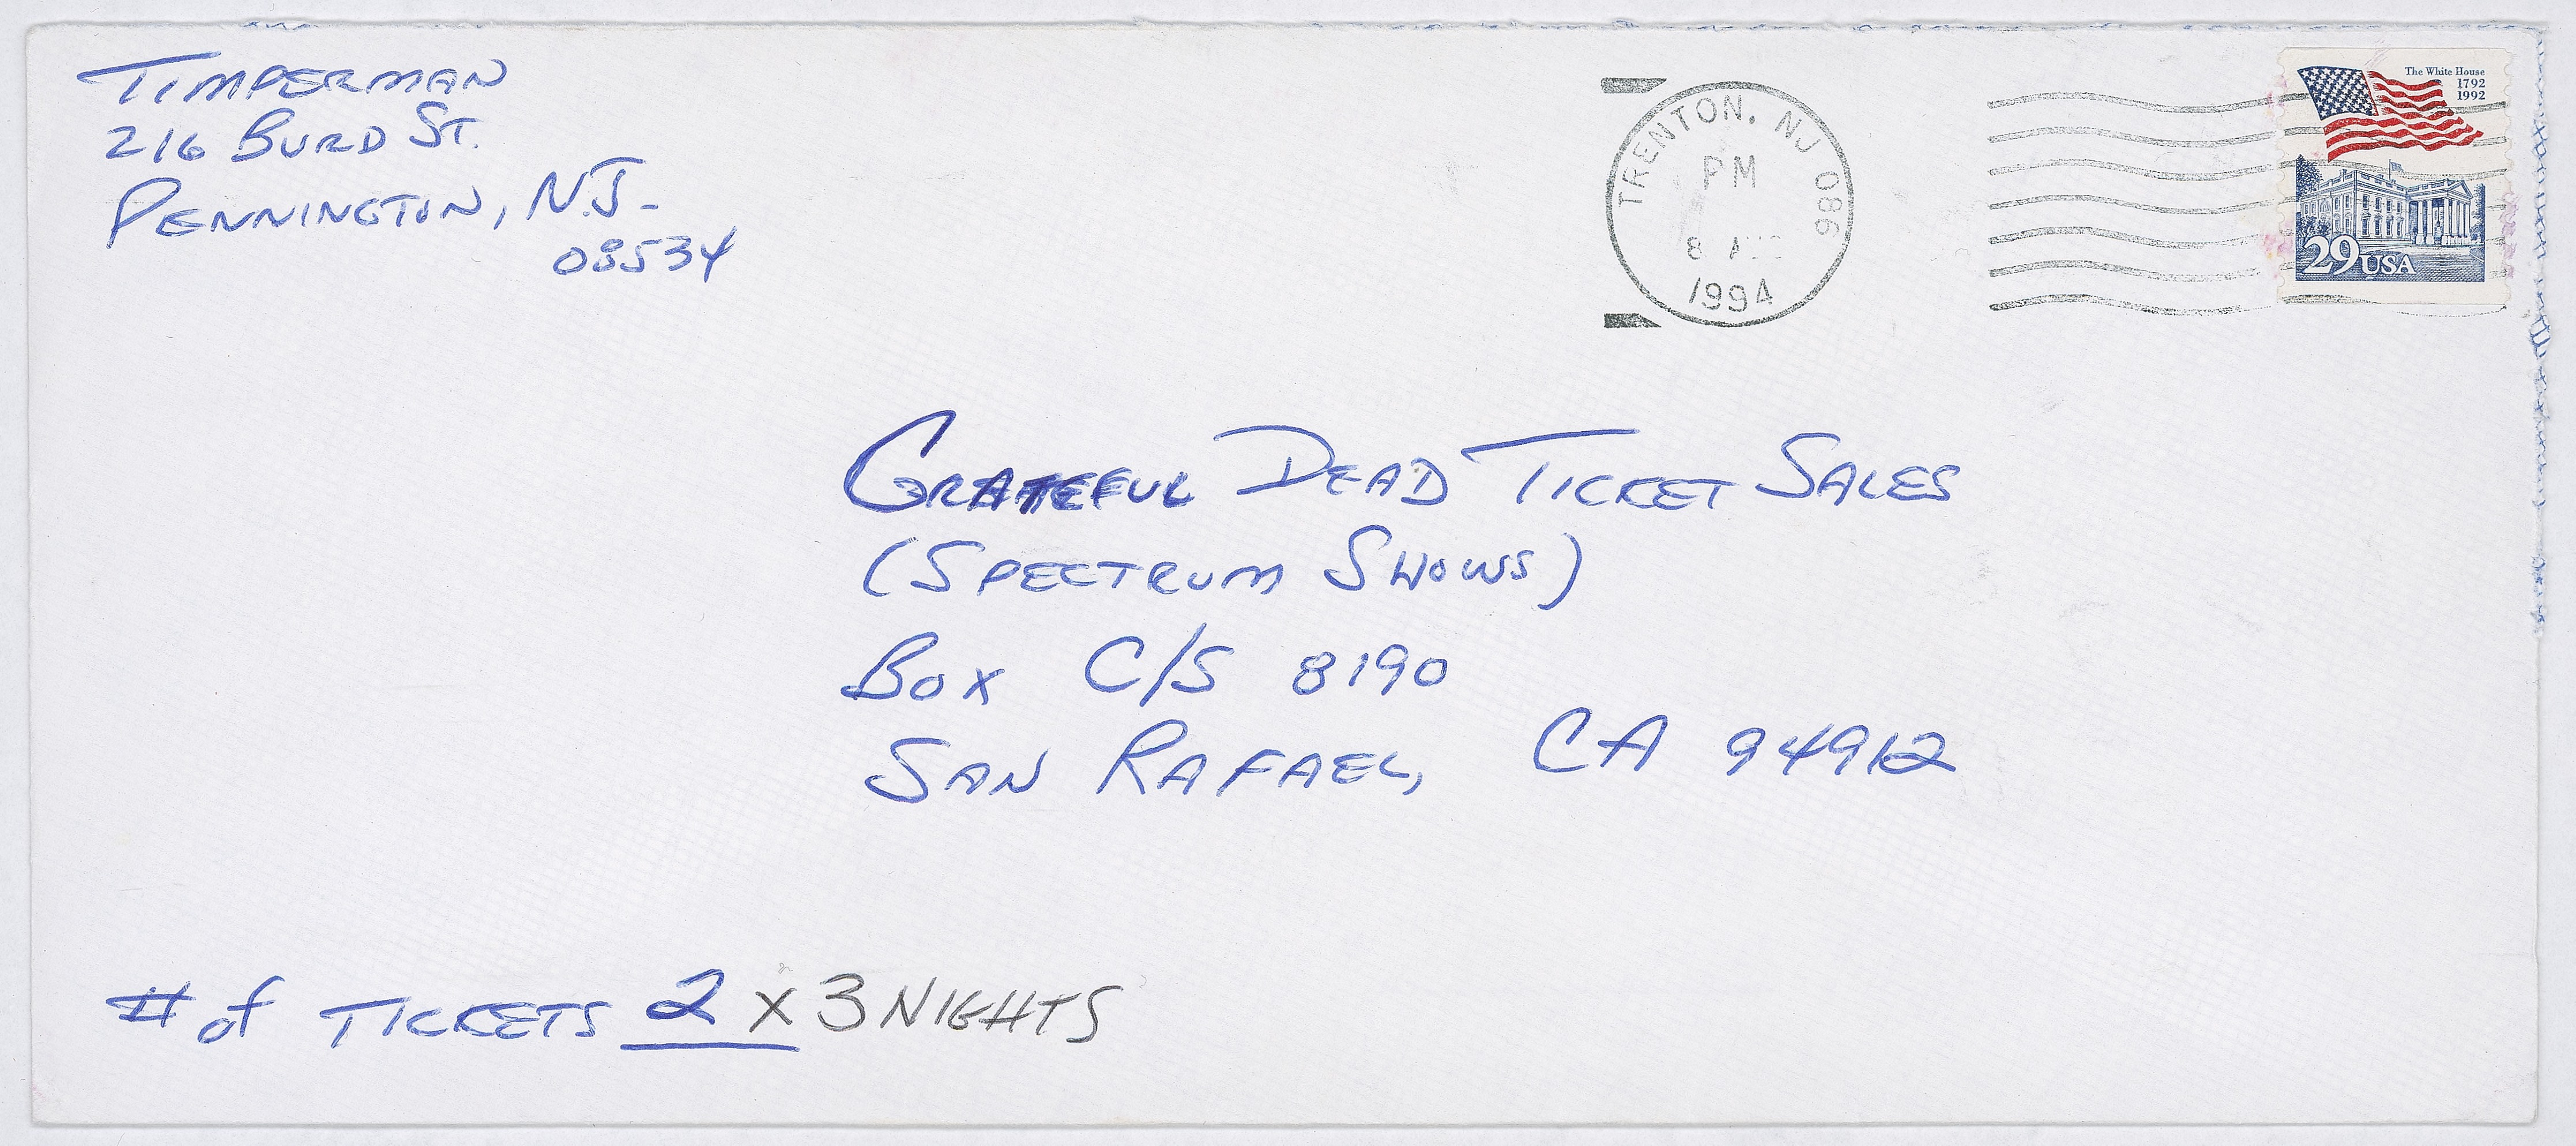 TIMPERMAN
216 BURD ST.
PENNINGTON, N.J.
08534
TRENTON, NJ 086
PM
8
1994
The White House
1792
1992
29 USA
GRATEFUL DEAD TICKET SALES
(SPECTRUM SHOWS)
BOX C/S 8190
SAN RAFAEL, CA 94912
# of TICKETS 2 X 3 NIGHTS